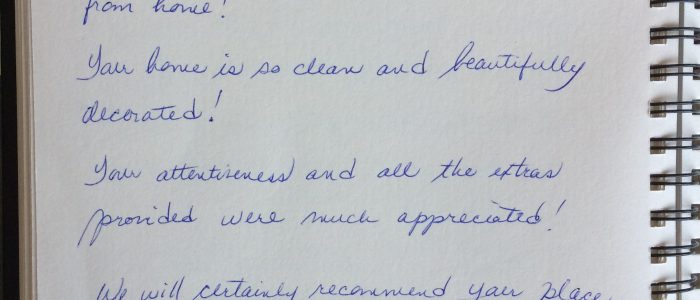 from home!
Your home is so clean and beautifully
decorated!
Your attentiveness and all the extras
provided were much appreciated!
We will certainly recommend your place